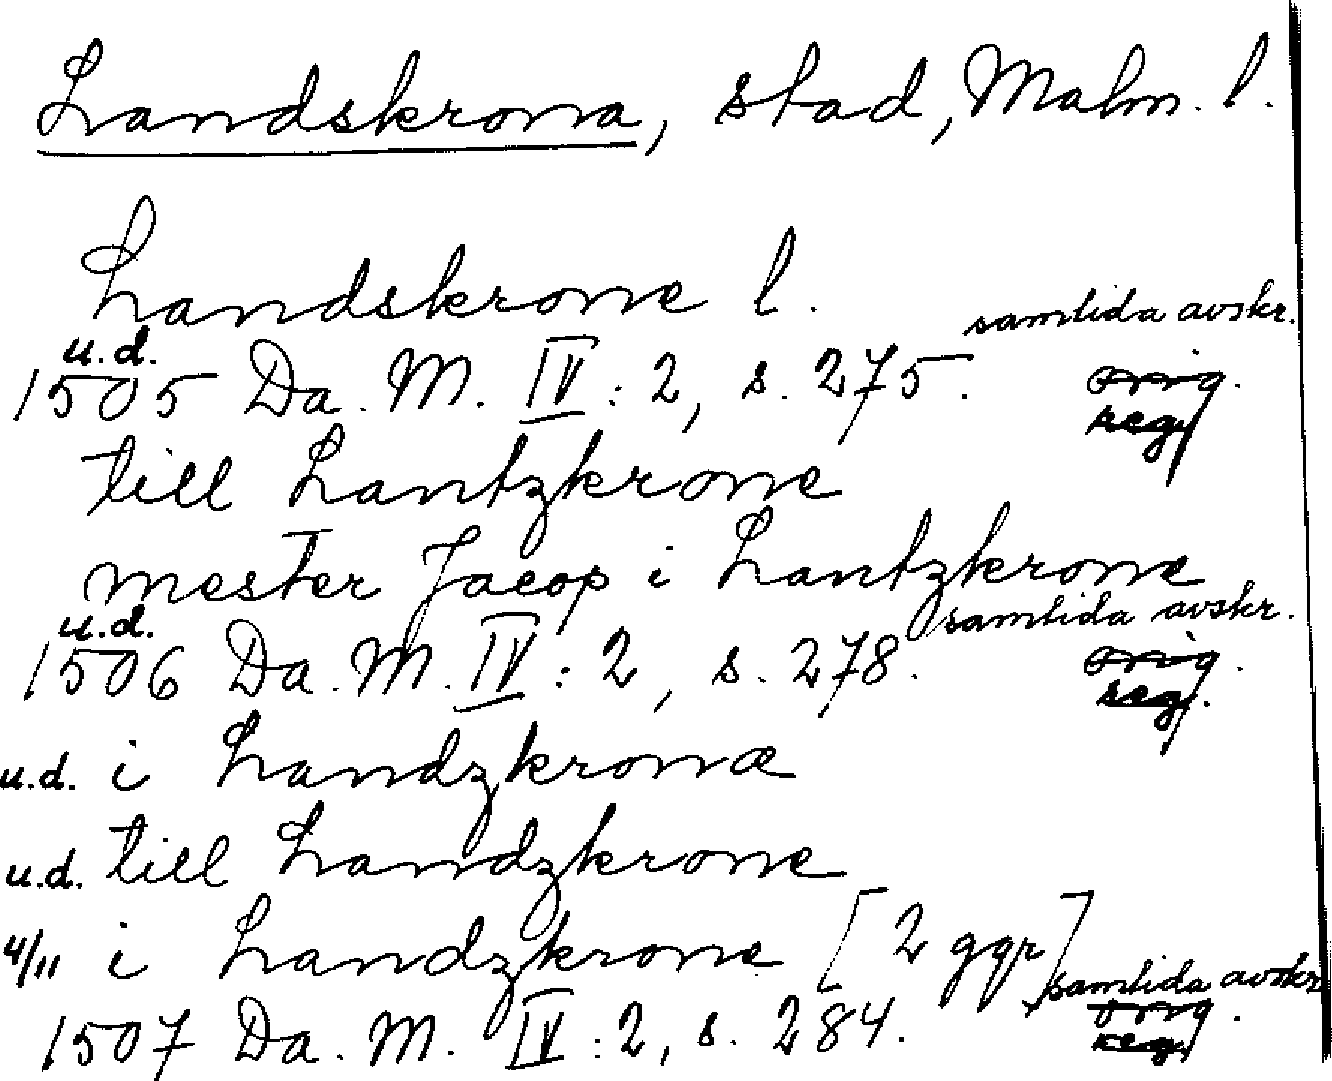 Landskrona, stad, Malm. l.
Landskrone l.
samtida avskr.
u.d.
1505 Da. M. IV : 2, s. 275. orig.
reg.
till Lantzkrone
mester Jacop i Lantzkrone
u.d. samtida avskr.
1506 Da. M. IV : 2, s. 278. orig.
reg.
u.d. i Landzkronæ
u.d. till Landzkrone
4/11 i Landzkrone [2 ggr]
samtida avskr.
1507 Da. M. IV : 2, s. 284. orig.
reg.